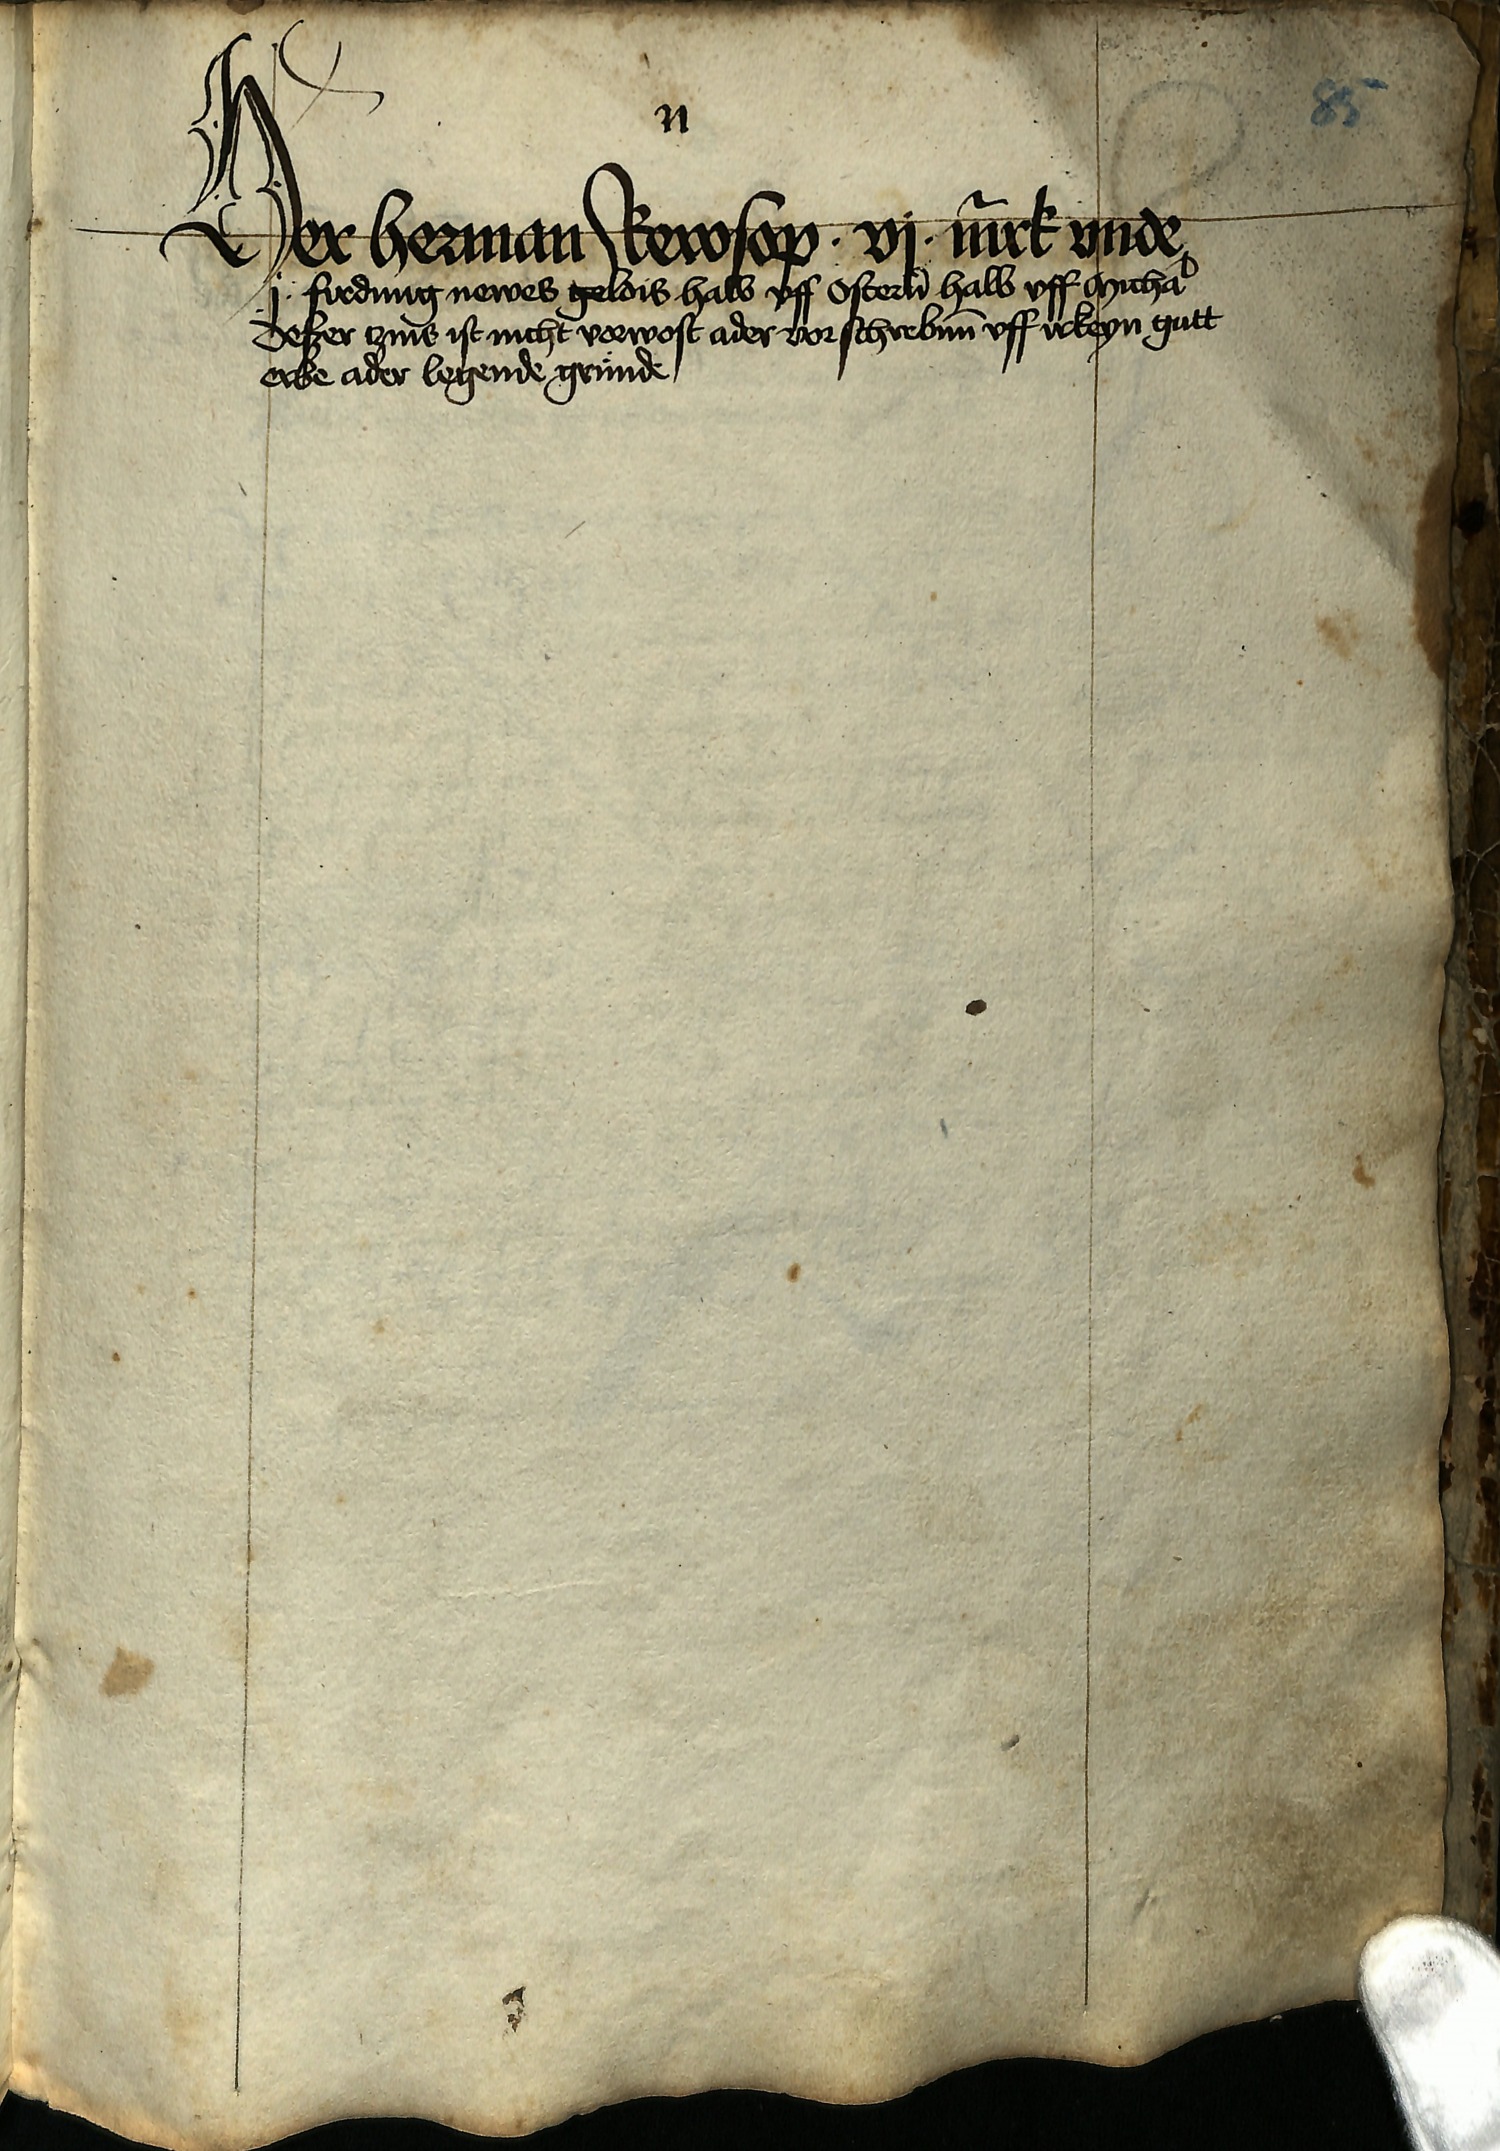 n
85
Her herman Rewsop · vj · mrk vnde
j · firdung newes geldis halb vff Ostern̄ halb vff Micha
Deßer tzins ist nicht vorwost ader vorschrebin̄ vff ickeyn gutt
erbe ader legende grunde